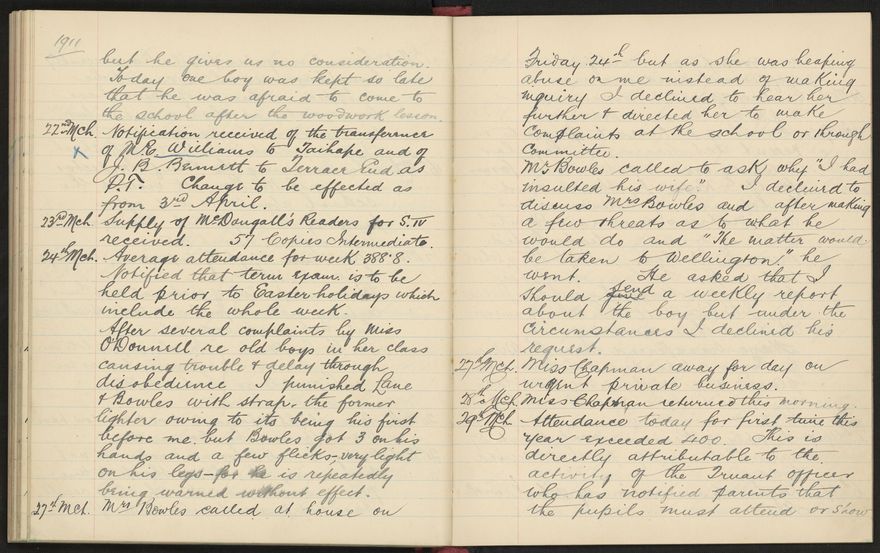 1911
but he gives us no consideration.
Today one boy was kept so late
that he was afraid to come to
the school after the woodwork lesson.
22nd Mch. Notification received of the transference
of M.E. Williams to Taihape and of
J. B. Bennett to Terrace End as
P.T. Change to be effected as
from 3rd April.
23rd Mch. Supply of McDougall's Readers for S. IV
received. 57 Copies Intermediate.
24th Mch. Average attendance for week 388.8.
Notified that term exam. is to be
held prior to Easter holidays which
include the whole week.
After several complaints by Miss
O'Donnell re old boys in her class
causing trouble & delay through
disobedience I punished Lane
& Bowles with strap, the former
lighter owing to its being his first
before me, but Bowles got 3 on his
hands and a few flicks – very light
on his legs – for he is repeatedly
being warned without effect.
27th Mch. Mrs Bowles called at house on
Friday 24th but as she was heaping
abuse on me instead of making
inquiry I declined to hear her
further & directed her to make
complaints at the school or through
Committee.
Mr Bowles called to ask why "I had
insulted his wife." I declined to
discuss Mrs Bowles and after making
a few threats as to what he
would do and "The matter would
be taken to Wellington," he
went. He asked that I
should send a weekly report
about the boy but under the
circumstances I declined his
request.
27th Mch. Miss Chapman away for day on
urgent private business.
28th Mch. Miss Chapman returned this morning.
29th Mch. Attendance today for first time this
year exceeded 400. This is
directly attributable to the
activity of the Truant officer
who has notified parents that
the pupils must attend or show